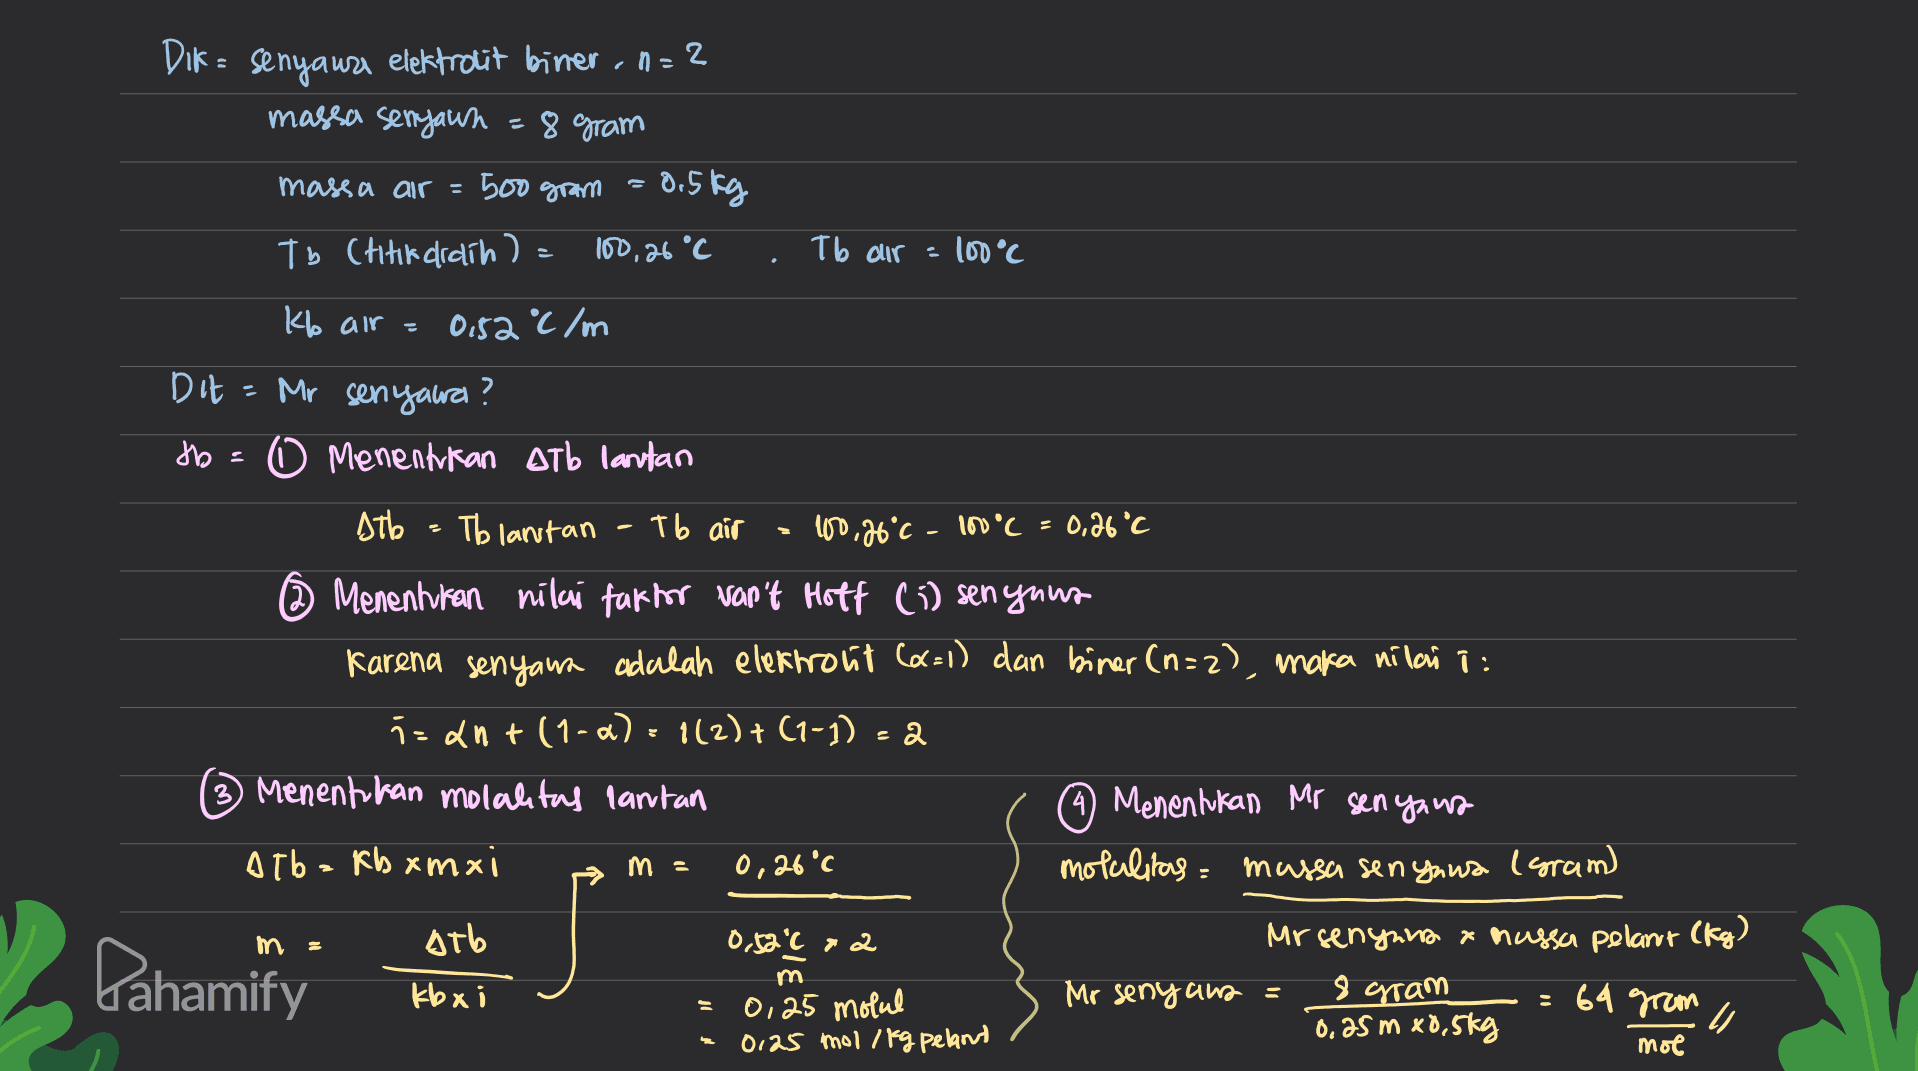 Dik = senyawa elektrolit biner, n = 2
massa senyawa = 8 gram
massa air = 500 gram = 0,5 kg
Tb (titik didih) = 100,26 °C , Tb air = 100 °C
Kb air = 0,52 °C /m
Dit = Mr senyawa ?
Jb = ① Menentukan ΔTb larutan
ΔTb = Tb larutan - Tb air = 100,26 °C - 100 °C = 0,26 °C
② Menentukan nilai faktor van't Hoff (i) senyawa
Karena senyawa adalah elektrolit (α=1) dan biner (n=2), maka nilai i :
i = αn + (1-α) = 1(2) + (1-1) = 2
③ Menentukan molalitas larutan
ΔTb = Kb x m x i
m = ΔTb / Kb x i
m = 0,26 °C / 0,52 °C/m x 2
= 0,25 molal
= 0,25 mol / kg pelarut
④ Menentukan Mr senyawa
molalitas = massa senyawa (gram) / Mr senyawa x massa pelarut (kg)
Mr senyawa = 8 gram / 0,25 m x 0,5 kg = 64 gram / mol //
Pahamify